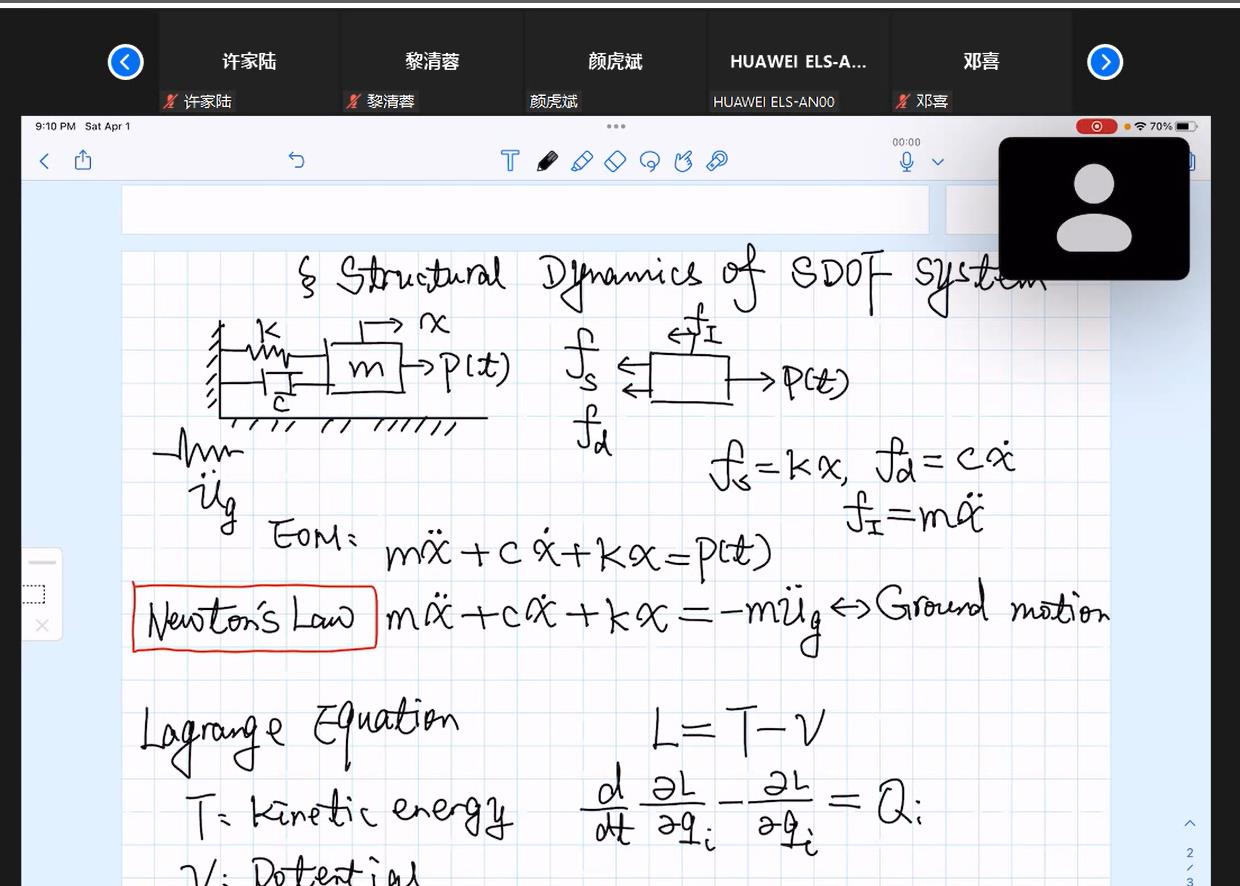 许家陆 黎清蓉 颜虎斌 HUAWEI ELS-A... 邓喜
许家陆 黎清蓉 颜虎斌 HUAWEI ELS-AN00 邓喜
9:10 PM Sat Apr 1 70%
00:00
§ Structural Dynamics of SDOF System
k x f_I
m P(t) f_s P(t)
c f_d
ü_g
f_s = kx, f_d = cẋ
f_I = mẍ
EOM: mẍ + cẋ + kx = p(t)
Newton's Law mẍ + cẋ + kx = -mü_g ↔ Ground motion
Lagrange Equation L = T - V
T: Kinetic energy d/dt ∂L/∂q_i - ∂L/∂q_i = Q_i
V: Potential
2
/
3